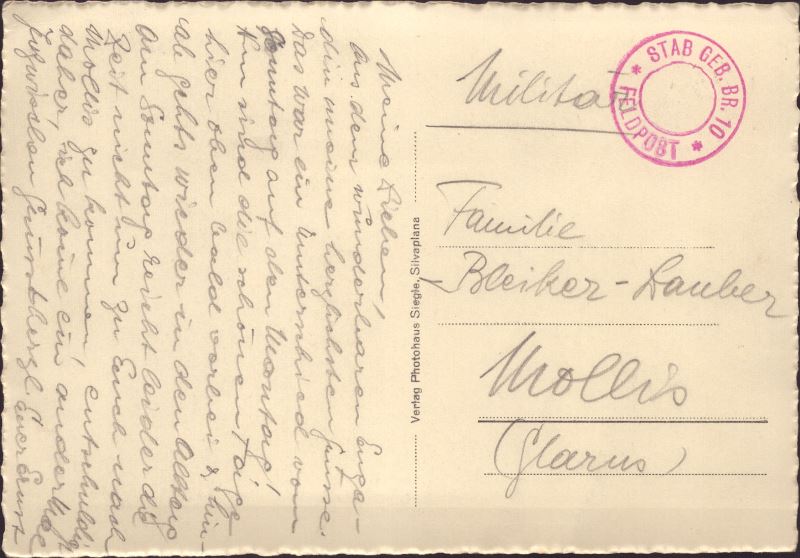 Meine Lieben!
Aus dem wunderbaren Enga-
din meine herzlichsten Grüsse.
Das war ein Unterschied vom
Sonntag auf den Montag!
Nun sind die schönen Tage
hier oben bald vorbei & hin-
ab gehts wieder in den Alltag
Am Sonntag reicht leider die
Zeit nicht um zu Euch nach
Mollis zu kommen entschuldigt
daher, ich komme ein andermal
Inzwischen grüsst herzl. Euer Ernst
Verlag Photohaus Siegle, Silvaplana
Militär
* STAB GEB. BR. 10 *
FELDPOST
Familie
Bleiker-Lauber
Mollis
(Glarus)